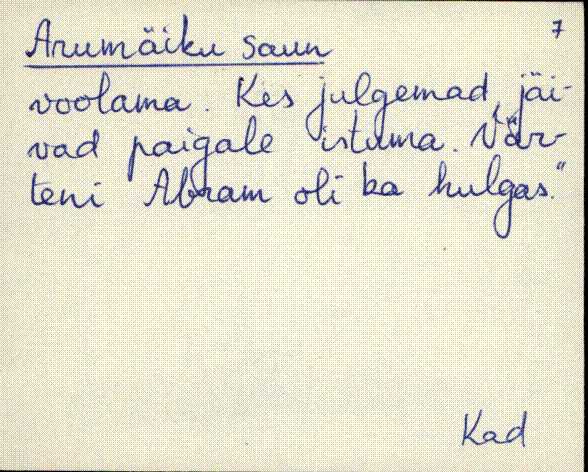 7
Arumäiku saun
voolama. Kes julgemad, jäi-
vad paigale istuma. Vär-
teni Abram oli ka hulgas."
Kad